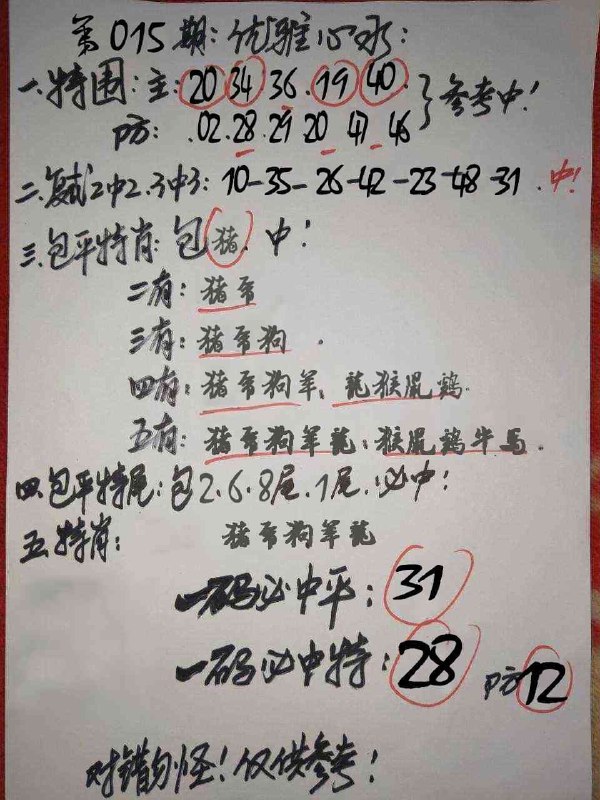 第015期:优雅心水:
一.特围:主:20 34 36.19 40.
防:.02.28.29 20 47 46 }参考中!
二.复试2中2.3中3:10-35-26-42-23-48-31.中!
三.包平特肖:包猪.中!
二有:猪帝
三有:猪帝狗.
四有:猪帝狗羊、龍猴鼠鸡.
五有:猪帝狗羊龍:猴鼠鸡牛马.
四.包平特尾:包2.6.8尾.1尾.必中!
五.特肖:猪帝狗羊龍
一码必中平:31
一码必中特:28 防12
对错勿怪!仅供参考!